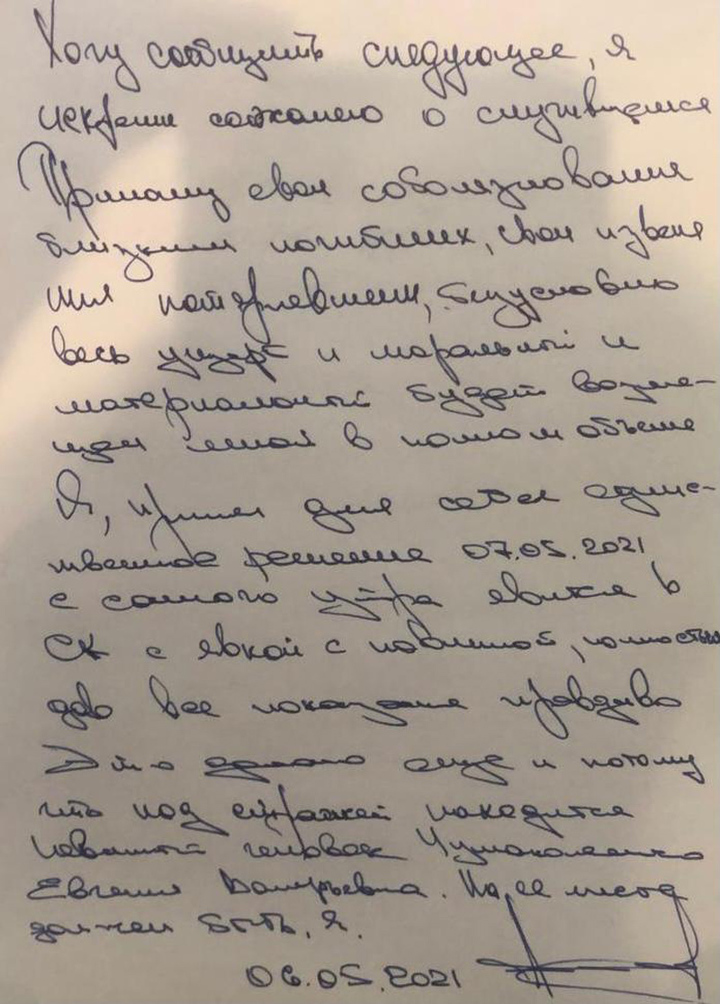 Хочу сообщить следующее, я
искренне сожалею о случившемся
Приношу свои соболезнования
близким погибших, свои извене
ния потерпевшим, безусловно
весь ущерб и моральный и
материальный будет возме-
щен мной в полном объеме
Я, принял для себя единс-
твенное решение 07.05.2021
с самого утра явится в
СК с явкой с повинной, полностью
даю все показания правдиво
Это еще и потому
что под стражей находится
человек
Евгения Валерьевна. На ее месте
должен быть, я.
06.05.2021